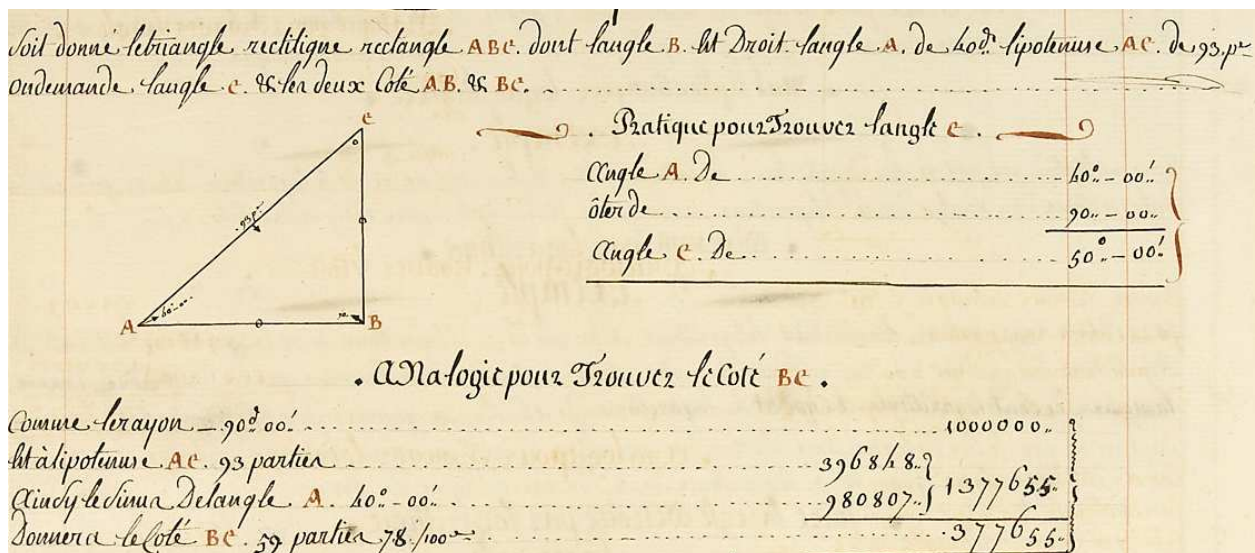 Soit donné le triangle rectiligne rectangle ABC. dont l'angle B. est Droit. l'angle A. de 40d. lipotenuse AC. de 93. p.es
on demande l'angle C. & les deux Coté AB. & BC.
C
. Pratique pour Trouver l'angle C.
Angle A. De 40°. - 00'.
ôter de 90.. - 00..
Angle C. De 50°. - 00'
93 p.
A 40° 00 90. B
. Analogie pour Trouver le Coté BC .
Comme le rayon 90d 00' 1000000.
Est à lipotenuse AC. 93 parties 396848.
Ainsy le Sinus De l'angle A. 40° - 00' 980807. 1377655.
Donnera le Coté BC. 59 parties 78./100es 377655.